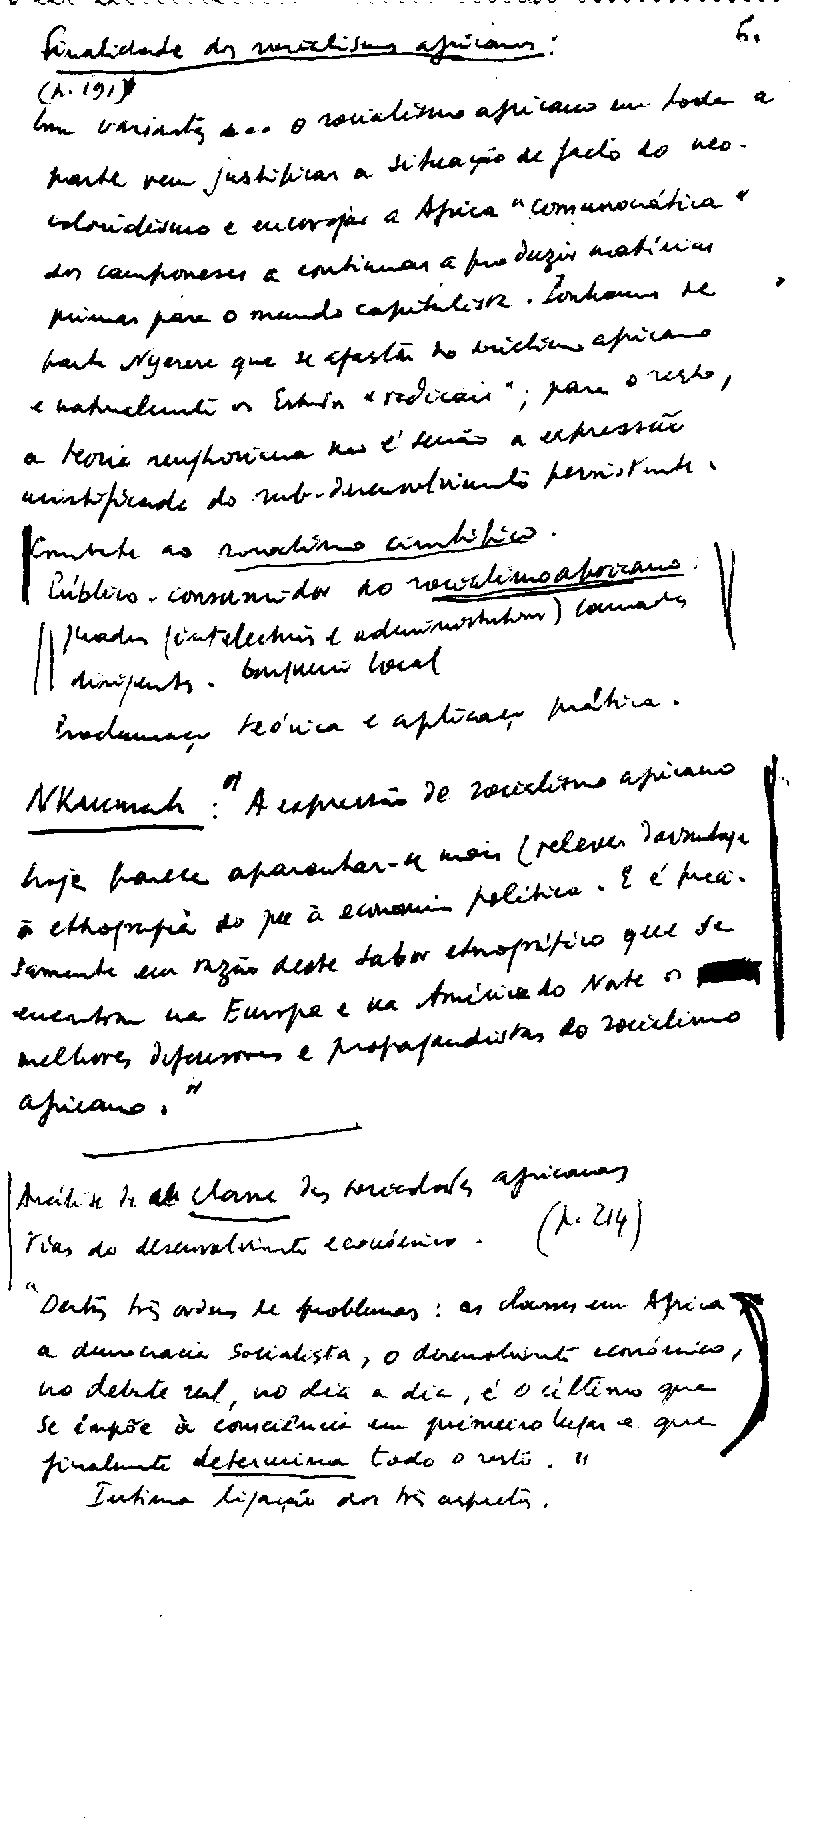 6.
Finalidade dos socialismos africanos:
(p. 191)
Com variantes ... o socialismo africano em toda a
parte vem justificar a situação de facto do neo-
colonialismo e encorajar a Africa "comunocrática"
dos camponeses a continuar a produzir matérias
primas para o mundo capitalista. Ponhamos de
parte Nyerere que se afasta do socialismo africano
e naturalmente os Estados "radicais"; para o resto,
a teoria senghoriana não é senão a expressão
mistificada do sub-desenvolvimento persistente.
Combate ao socialismo científico.
Público-consumidor do socialismo africano:
Quadros (intelectuais e administrativos) camadas
dirigentes. Burguesia local
Proclamação teórica e aplicação prática.
NKrumah: "A expressão de socialismo africano
hoje parece aparentar-se mais (relever davantage
à ethografia do que à economia política. E é preci-
samente em razão deste sabor etnográfico que se
encontram na Europa e na América do Norte os
melhores difusores e propagandistas do socialismo
africano."
Análise de classe das sociedades africanas
Vias do desenvolvimento económico. (p. 214)
"Destas três ordens de problemas: as classes em Africa
a democracia socialista, o desenvolvimento económico,
no debate real, no dia a dia, é o último que
se impõe à consciência em primeiro lugar e que
finalmente determina todo o resto."
Intima ligação dos três aspectos.